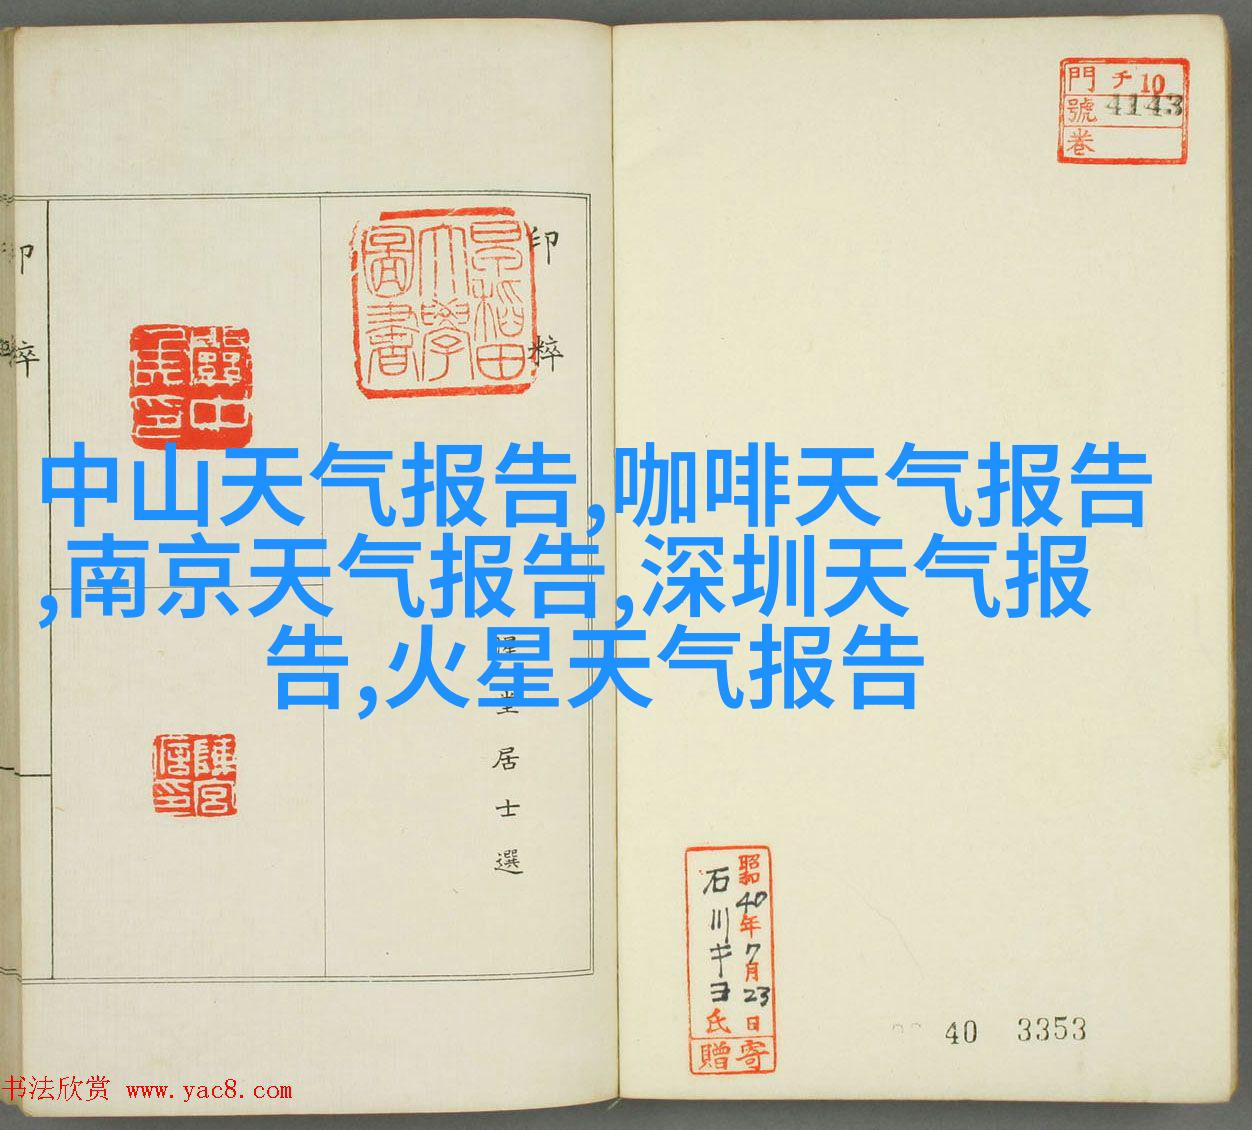 門 チ 10
號 4143
卷
印粹
早稻田
大學
圖書
印粹
中山天气报告,咖啡天气报告
,南京天气报告,深圳天气报
告,火星天气报告
堂居士選
陳宮
信印
昭和40年7月23日
石川キヨ氏
寄贈
40 3353
书法欣赏 www.yac8.com